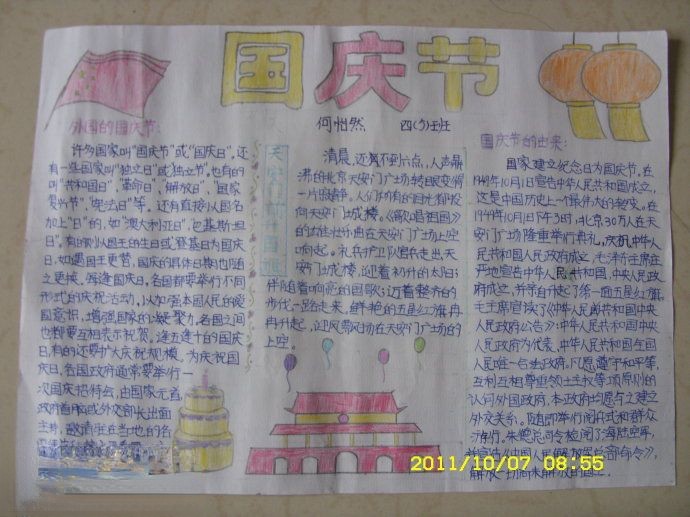 国庆节
何怡然 四(3)班
外国的国庆节:
许多国家叫“国庆节”或“国庆日”,还
有一些国家叫“独立日”或“独立节”,也有的
叫“共和国日”,“革命日”,“解放日”,“国家
复兴节”,“宪法日”等,还有直接以国名
加上“日”的,如“澳大利亚日”,也基斯坦
日”,有的以国王的生日或登基日为国庆
日,如遇国王更替,国庆的具体日期也随
之更换。每逢国庆日,各国都要举行不同
形式的庆祝活动,以加强本国人民的爱
国意识,增强国家的凝聚力,各国之间
也都要互相表示祝贺。逢五逢十的国庆
日,有的还要扩大庆祝规模,为庆祝国
庆日,各国政府通常要举行一
次国庆招待会,由国家元首,
政府首脑或外交部长出面
主持,邀请驻在当地的各
天安门前
清晨,还算不到六点,人声鼎
沸的北京天安门广场转眼变得
一片寂静,人们所有的目光都投
向天安门城楼。《歌唱祖国》
的雄壮乐曲在天安门广场上空
响起。礼兵护卫队官兵走出天
安门城楼,迎着初升的太阳;
伴随着响亮的国歌;迈着整齐的
步伐一路走来,鲜艳的五星红旗冉
冉升起,迎风飘扬在天安门广场的
上空。
国庆节的由来:
国家建立纪念日为国庆节,在
1949年10月1日宣告中华人民共和国成立,
这是中国历史上一个最伟大的转变。在
1949年10月1日下午3时,北京30万人在天
安门广场隆重举行典礼,庆祝中华人
民共和国政府成立,毛泽东主席庄
严地宣告中华人民共和国,中央人民政
府成立,并亲自升起了第一面五星红旗,
毛主席宣读了《中华人民共和国中央
人民政府公告》:中华人民共和国中央
人民政府为代表,中华人民共和国全国
人民唯一合法政府,凡愿遵守和平等,
互利互相尊重领土主权等项原则的
认何外国政府,本政府均愿与之建立
外交关系。随即举行阅兵式和群众
游行。朱德总司令检阅了海陆空军,
并宣布《中国人民解放军总部命令》,
2011/10/07 08:55